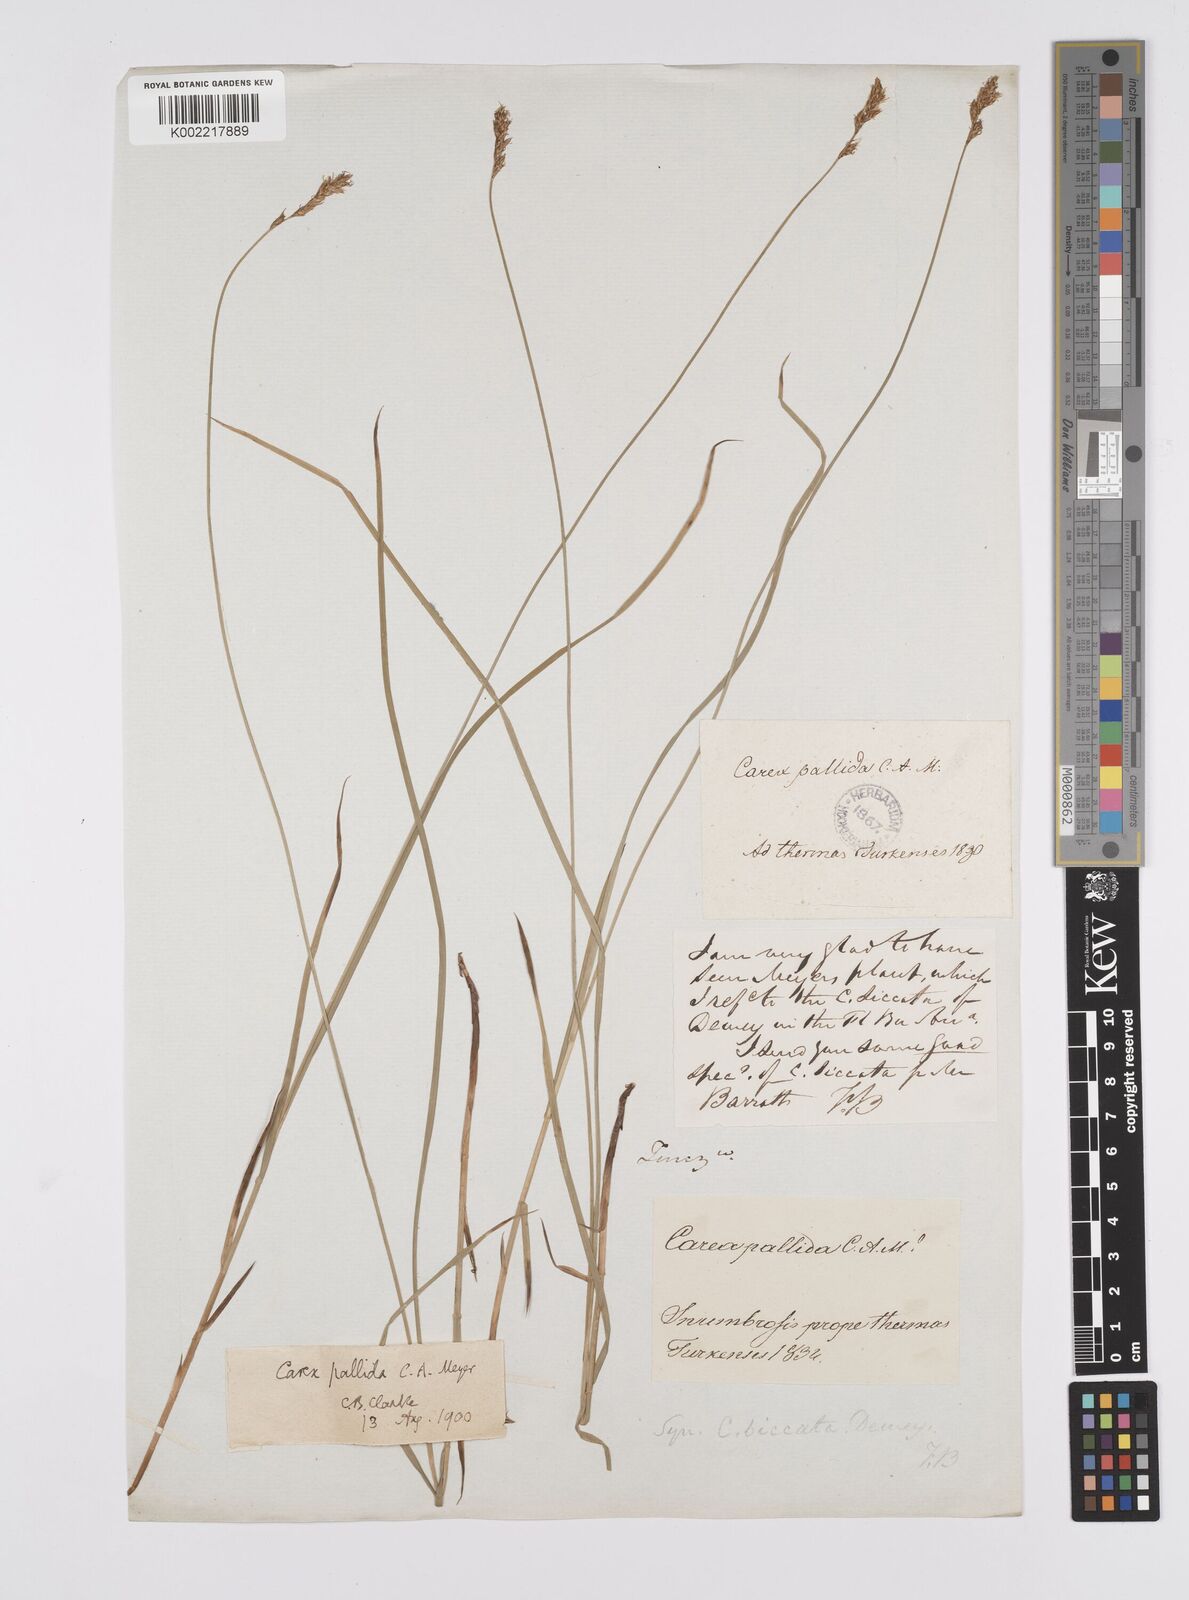 ROYAL BOTANIC GARDENS KEW
K002217889
Carex pallida C. A. M:
HERBARIUM
1867.
Ad thermas Turkenses 1830
I am very glad to have
seen Meyers plant, which
I ref to the C. siccata of
Dewey in the Fl Bor Ama.
I send you some good
specs. of C. siccata fr Mr
Barratt FB
Turcz
Carex pallida C. A. M.
In umbrosis prope thermas
Turkenses 1832.
Syn. C. siccata Dewey.
FB
Carex pallida C. A. Meyer
C.B. Clarke
13 Aug. 1900
inches
centimeters
Density
Don Williams
M000862
Royal Botanic Gardens
Kew
copyright reserved
cm
0 1 2 3 4 5 6 7 8 9 10